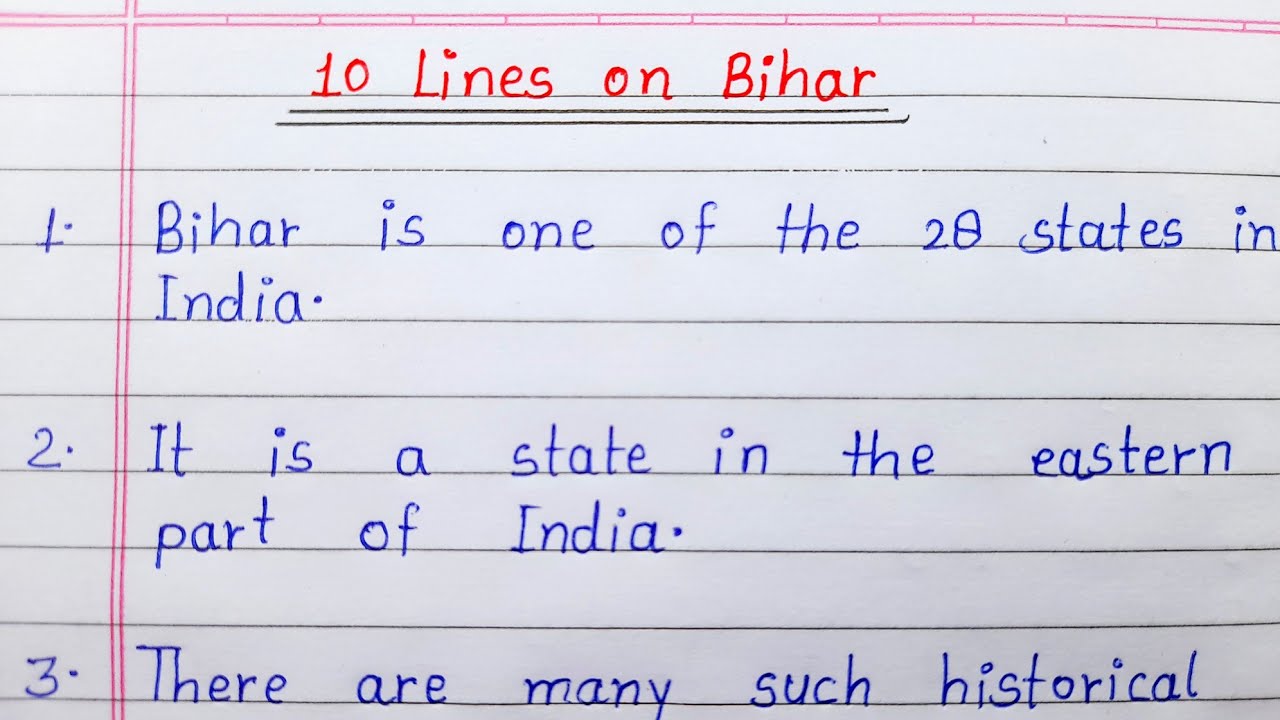 10 Lines on Bihar
1. Bihar is one of the 28 states in
India.
2. It is a state in the eastern
part of India.
3. There are many such historical